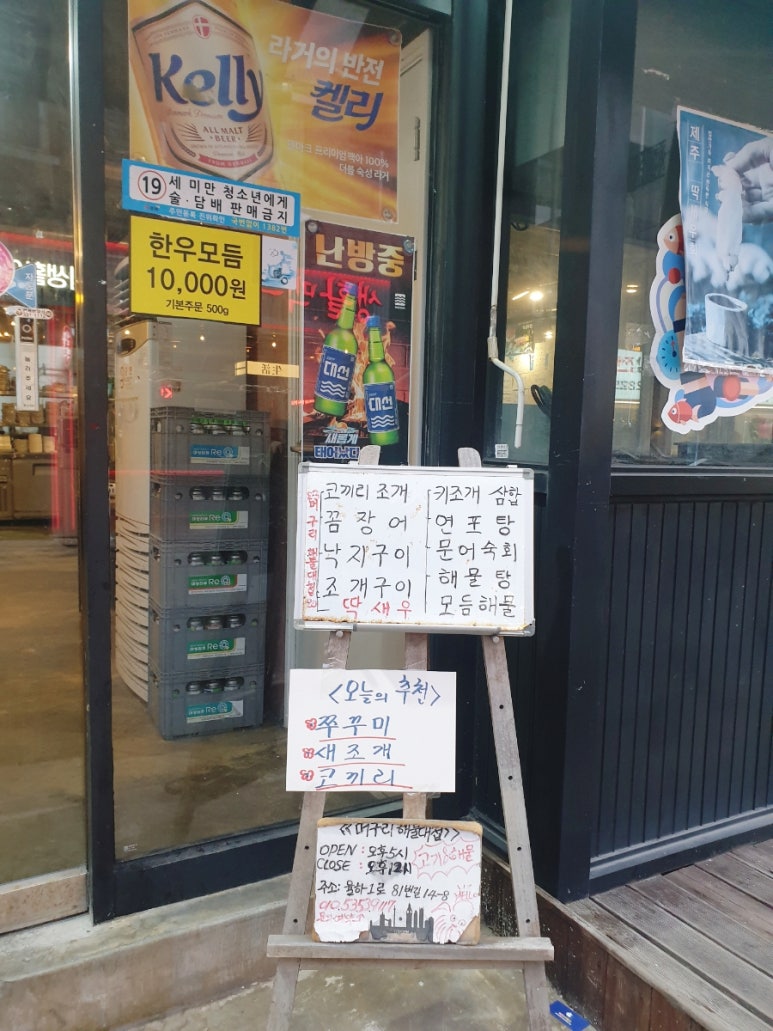 Kelly
ALL MALT
BEER
라거의 반전
켈리
덴마크 프리미엄맥아 100%
더블 숙성 라거
19 세 미만 청소년에게
술·담배 판매금지
한우모듬
10,000원
기본주문 500g
난방중
대선
대선
새롭게
태어났다
生活
제주
ReQ
ReQ
ReQ
ReQ
ReQ
머구리 해물대첩
코끼리 조개
꼼장어
낙지구이
조개구이
딱새우
키조개 삼합
연포탕
문어숙회
해물탕
모듬해물
<오늘의 추천>
쭈꾸미
새조개
코끼리
<<머구리 해물대첩>>
OPEN : 오후5시
CLOSE : 오후12시
고기&해물
주소: 율하1로 81번길 14-8